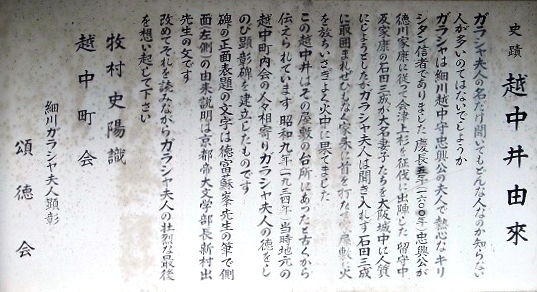 史蹟 越中井由來
ガラシャ夫人の名だけ聞いてもどんな人なのか知らない
人が多いのではないでしょうか
ガラシャは細川越中守忠興公の夫人で熱心なキリ
シタン信者でありました 慶長五年(一六〇〇年)忠興公が
徳川家康に從って会津上杉を征伐に出陣した留守中
反家康の石田三成が大名妻子たちを大阪城中に人質
にしようとしたがガラシャ夫人は聞き入れず石田三成
に取囲まれぜひもなく家来に首を打た 屋敷に火
を放ちいさぎよく火中に果てました
この越中井はその屋敷の台所にあったと古くから
伝えられています 昭和九年(一九三四年)当時地元の
越中町内会の人々相寄りガラシャ夫人の徳をし
のび顕彰碑を建立したものです
碑の正面表題の文字は徳富蘇峯先生の筆で側
面(左側)の由来説明は京都帝大文学部長新村出
先生の文です
改めてそれを読みながらガラシャ夫人の壮烈な最後
を想い起して下さい
牧村史陽識
越中町会
細川ガラシャ夫人顕彰
頌徳会